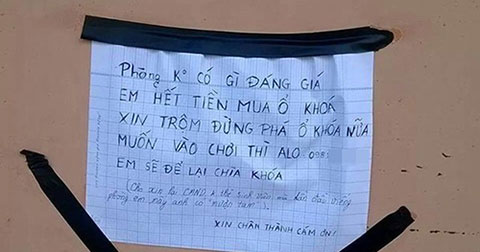 Phòng K° CÓ GÌ ĐÁNG GIÁ
EM HẾT TIỀN MUA Ổ KHOÁ
XIN TRỘM ĐỪNG PHÁ Ổ KHÓA NỮA
MUỐN VÀO CHƠI THÌ ALO 098
EM SẼ ĐỂ LẠI CHÌA KHÓA
Cho xin lại CMND & thẻ sinh viên mà lần trước
phòng em mấy anh có "mượn tạm".
XIN CHÂN THÀNH CẢM ƠN!